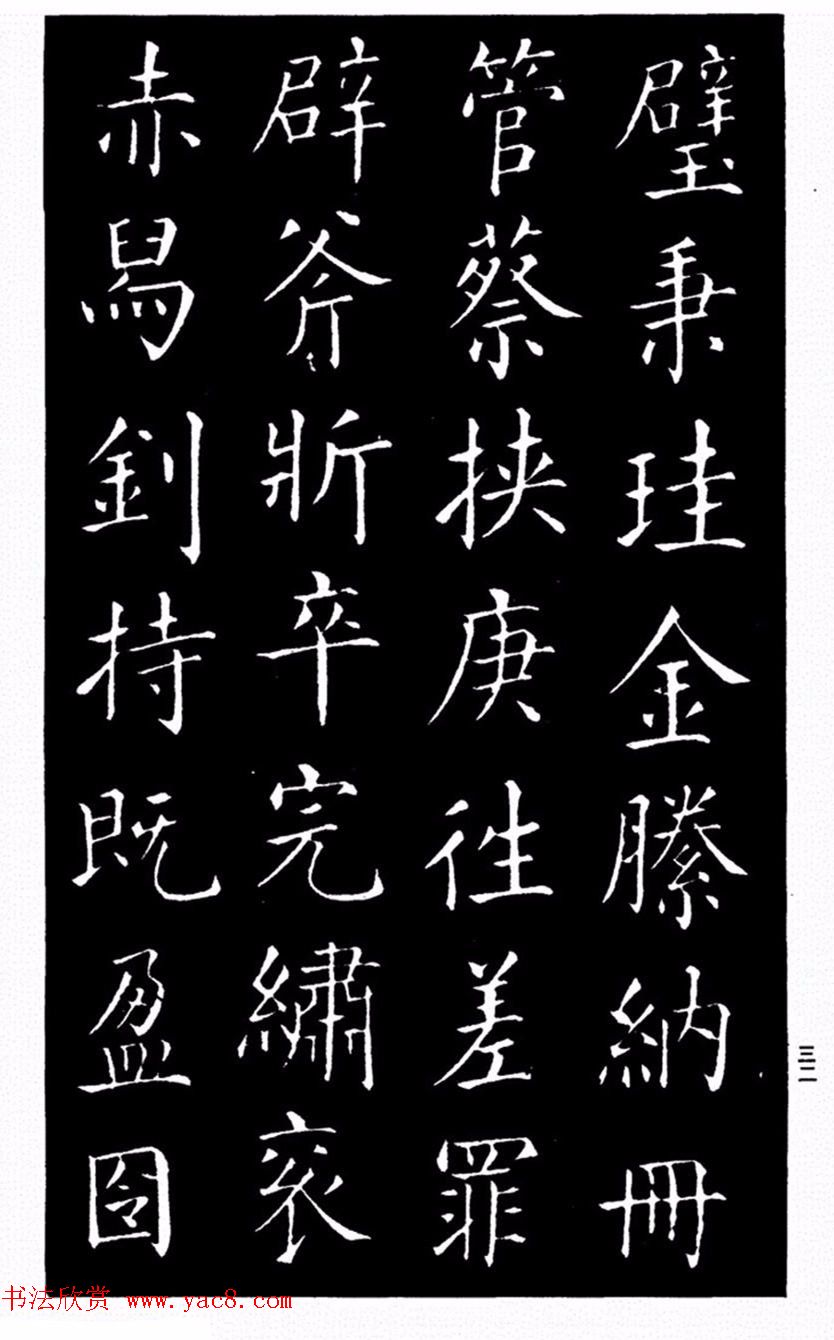 璧秉珪金縢納冊
管蔡挾庚往差罪
辟斧斨卒完繡衮
赤舄釗持既盈囹
三二
书法欣赏 www.yac8.com